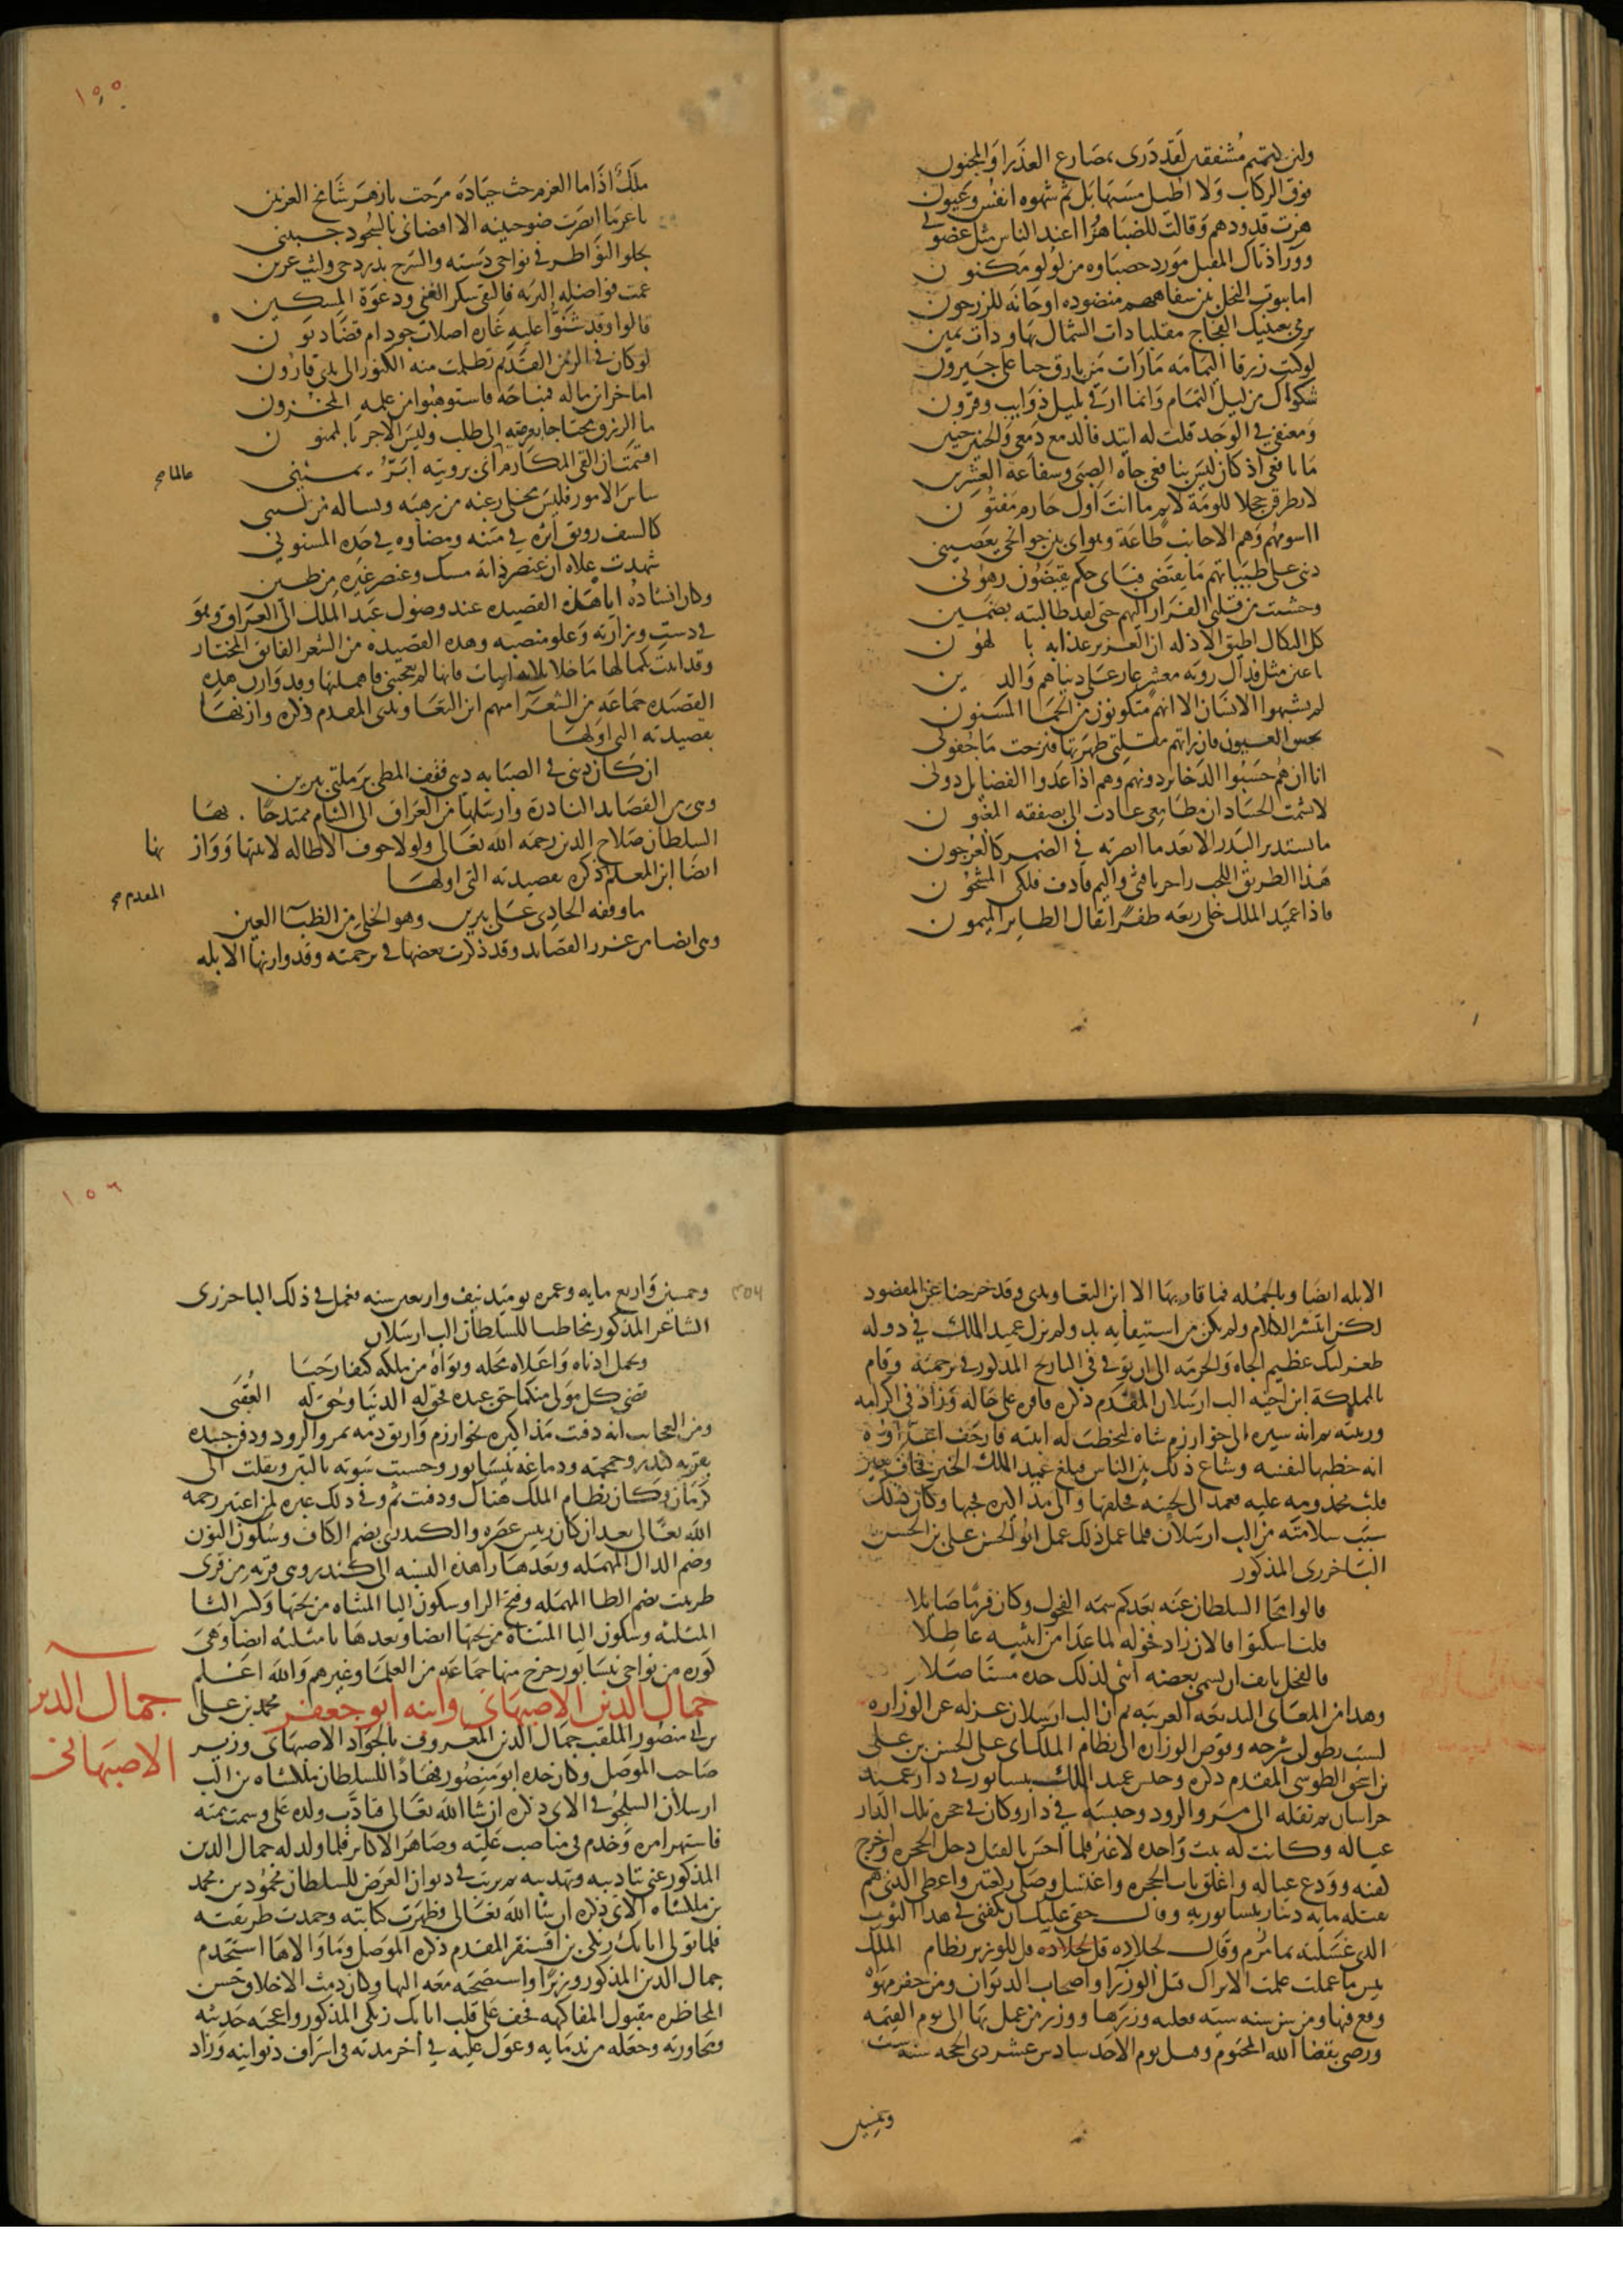 ولئن كتمتم مشفقين لقد درى بمصارع العذرا والمجنون
فوق الركاب ولا اطيل مشبها بل ثم شهوة انفس وعيون
هزت قدودهم وقالت للصبا هزوا اعند الناس مثل غصوني
وورا ذياك المقبل مورد حصباوه من لولو مكنون
اما بيوت النحل بين شفاههم منضوده او حانه للزرجون
ترمي بعينيك الفجاج مقلبا ذات الشمال بها وذات يمين
لو كنت زرقا اليمامه ما رات من بارق حيا على جيرون
شكواك من ليل التمام وانما ارقي بليل ذوايب وقرون
ومعنفي في الوجد قلت له اتيد فالدمع دمعي والحنين حنيني
ما نافعي اذ كان ليس بنافعي جاه الصبى وشفاعة العشرين
لا تطرقن خجلا للومة لايم ما انت اول حازم مفتون
ااسومهم وهم الاجانب طاعة وهواي بين جوانحي يعصيني
ديني على ظبياتهم ما يقتضى فباي حكم يقبضون رهوني
وخشيت من قلبي الفرار اليهم حتى لقد طالبته بضمين
كل النكال اطيق الا ذله ان العزيز عذابه بالهون
يا عين مثل قذاك رويه معشر عار على دنياهم والدين
لم يشبهوا الانسان الا انهم متكونون من الحما المسنون
نجس العيون فان راتهم مقلتي طهرتها فنزحت ما جفوني
انا ان هم حسبوا الذخاير دونهم وهم اذا عدوا الفضايل دوني
لا يشمت الحساد ان مطامعي عادت الي بصفقه المغبون
ما يستدير البدر الا بعد ما ابصرته في الضمر كالعرجون
هذا الطريق اللحب زاحر ناقتي واليم قاذف فلكي المشحون
فاذا عميد الملك حلى ربعه ظفرا بفال الطاير الميمون
١٥٥
ملك اذا ما العزم حث جياده مرحت بازهر شامخ العرنين
يا عز ما ابصرت ضو جبينه الا اقتضاني بالسجود جبيني
يجلو النواظر في نواحي دسته والسرج بدر دجى وليث عرين
عمت فواضله البريه فالتقى شكر الغني ودعوة المسكين
قالوا وقد شنوا عليه غاره اصلات جود ام قضا ديون
لو كان في الزمن القديم تظلمت منه الكنوز الى يدي قارون
اما خزاين ماله فمباحه فاستوهبوا من علمه المخزون
ما الرزق محتاجا بعرصته الى طلب وليس الاجر بالممنون
اقسمت ان القى المكارم اني برويته ابر يميني
عالما صح
ساس الامور فليس يخلي رغبه من رهبه وبساله من لين
كالسيف رونق اثره في متنه ومضاوه في حده المسنون
شهدت علاه ان عنصر ذاته مسك وعنصر غيره من طين
وكان انشاده اياه هذه القصيده عند وصول عميد الملك الى العراق وهو
في دست وزارته وعلو منصبه وهذه القصيده من الشعر الفايق المختار
وقد اتيت بكمالها ما خلا ثلاثه ابيات فانها لم تعجبني فاهملتها وقد وازن هذه
القصيده جماعه من الشعرا منهم ابن التعاويذي المقدم ذكره وازنها
بقصيدته التي اولها
ان كان دينك في الصبابه ديني فقف المطي برملتي يبرين
وهي من القصايد النادره وارسلها من العراق الى الشام ممتدحا بها
السلطان صلاح الدين رحمه الله تعالى ولولا خوف الاطاله لاثبتها ووازنها
ايضا ابن المعلم ذكره بقصيدته التي اولها
المقدم صح
ما وقفه الحادي على يبرين وهو الخلي من الظبا العين
وهي ايضا من غرر القصايد وقد ذكرت بعضها في ترجمته وقد وازنها الابله
الابله ايضا وبالجمله فما قاربها الا ابن التعاويذي وقد خرجنا عن المقصود
لكن انتشر الكلام ولم يكن من استيفايه بد ولم يزل عميد الملك في دوله
طغرلبك عظيم الجاه والحرمه الى ان توفي في التاريخ المذكور في ترجمته وقام
بالمملكة ابن اخيه الب ارسلان المقدم ذكره فاقره على حاله وزاد في اكرامه
ورتبته ثم انه سيره الى خوارزم شاه ليخطب له ابنته فارجف اعداوه
انه خطبها لنفسه وشاع ذلك بين الناس فبلغ عميد الملك الخبر فخاف تغير
قلب مخدومه عليه فعمد الى لحيته فحلقها والى مذاكيره فجبها وكان ذلك
سبب سلامته من الب ارسلان فلما عمل ذلك عمل ابو الحسن علي بن الحسن
الباخرزي المذكور
قالوا محا السلطان عنه بعدكم سمه الفحول وكان قرما صايلا
قلت اسكتوا فالان زاد فحوله لما غدا من انثييه عاطلا
فالفحل يانف ان يسمى بعضه انثى لذلك جده مستاصلا
وهذا من المعاني البديعه الغريبه ثم ان الب ارسلان عزله عن الوزاره
لسبب يطول شرحه وفوض الوزاره الى نظام الملك ابي علي الحسن بن علي
بن اسحق الطوسي المقدم ذكره وحبس عميد الملك بنيسابور في دار عميد
خراسان ثم نقله الى مرو الرود وحبسه في دار وكان في حجره تلك الدار
عياله وكانت له بنت واحده لا غير فلما احس بالقتل دخل الحجره واخرج
كفنه وودع عياله واغلق باب الحجره واغتسل وصلى ركعتين واعطى الذي هم
بقتله مايه دينار نيسابوريه وقال حقي عليك ان تكفنني في هذا الثوب
الذي غسلته بما زمزم وقال لجلاده قل للوزير نظام الملك
بيس ما عملت علمت الاتراك قتل الوزرا واصحاب الديوان ومن حفر مهواه
وقع فيها ومن سن سنه سيه فعليه وزرها ووزر من عمل بها الى يوم القيمه
ورضي بقضا الله المحتوم وقتل يوم الاحد سادس عشر ذي الحجه سنه ست
وخمسين
١٥٦
وخمسين واربع مايه وعمره يوميذ نيف واربعين سنه فعمل في ذلك الباخرزي
الشاعر المذكور مخاطبا للسلطان الب ارسلان
وعمك ادناه واعلاه محله وبواه من ملكه كنفا رحبا
قضى كل مولى منكما حق عبده فخوله الدنيا وخولته العقبى
ومن العجايب انه دفنت مذاكيره بخوارزم واريق دمه بمرو الرود ودفن جسده
بقريه كندر وجمجمته ودماغه بنيسابور وحشيت سوته بالتبن ونقلت الى
كرمان وكان نظام الملك هناك ودفنت ثم وفي ذلك عبره لمن اعتبر رحمه
الله تعالى بعد ان كان رييس عصره والكندري بضم الكاف وسكون النون
وضم الدال المهمله وبعدها را هذه النسبه الى كندر وهي قريه من قرى
طريثيث بضم الطا المهمله وفتح الرا وسكون اليا المثناه من تحتها وكسر الثا
المثلثه وسكون اليا المثناه من تحتها ايضا وبعدها ثا مثلثه ايضا وهي
كوره من نواحي نيسابور خرج منها جماعه من العلما وغيرهم والله اعلم
جمال الدين الاصبهاني وابنه ابو جعفر محمد بن علي
جمال الدين
الاصبهاني
بن ابي منصور الملقب جمال الدين المعروف بالجواد الاصبهاني وزير
صاحب الموصل وكان جده ابو منصور فهادا للسلطان ملكشاه بن الب
ارسلان السلجوقي الاتي ذكره ان شا الله تعالى فتادب ولده علي وسمت همته
فاشتهر امره وخدم في مناصب عليه وصاهر الاكابر فلما ولد له جمال الدين
المذكور عني بتاديبه وتهذيبه ثم رتب في ديوان العرض للسلطان محمود بن محمد
بن ملكشاه الاتي ذكره ان شا الله تعالى فظهرت كفايته وحمدت طريقته
فلما تولى اتابك زنكي بن اقسنقر المقدم ذكره الموصل وما والاها استخدم
جمال الدين المذكور وزيرا واستصحبه معه اليها وكان دمث الاخلاق حسن
المحاضره مقبول المفاكهه فخف على قلب اتابك زنكي المذكور واعجبه حديثه
ومحاورته وجعله من ندمايه وعول عليه في اخر مدته في اشراف ديوانه وزاد